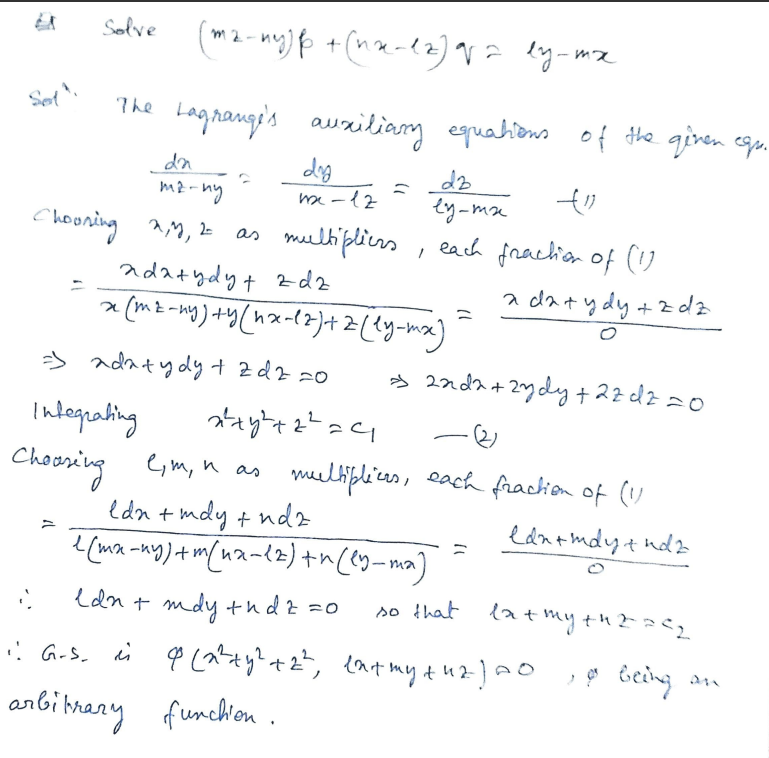 Solve (mz-ny)p + (nx-lz)q = ly-mx
Solⁿ. The Lagrange's auxiliary equations of the given eqn.
dx/(mz-ny) = dy/(nx-lz) = dz/(ly-mx) —(1)
Choosing x,y,z as multipliers, each fraction of (1)
= (xdx+ydy+zdz)/(x(mz-ny)+y(nx-lz)+z(ly-mx)) = (xdx+ydy+zdz)/0
⇒ xdx+ydy+zdz=0 ⇒ 2xdx+2ydy+2zdz=0
Integrating x²+y²+z²=c₁ —(2)
Choosing l,m,n as multipliers, each fraction of (1)
= (ldx+mdy+ndz)/(l(mx-ny)+m(nx-lz)+n(ly-mx)) = (ldx+mdy+ndz)/0
∴ ldx+mdy+ndz=0 so that lx+my+nz=c₂
∴ G.S. is φ(x²+y²+z², lx+my+nz)=0, φ being an
arbitrary function.